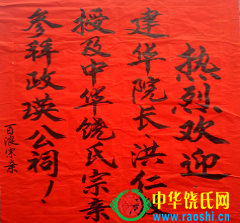 热烈欢迎
建华院长洪仁
授及中华饶氏宗亲
参拜政瑛公祠！
百浪宗亲
中华饶氏网
www.raoshi.cn